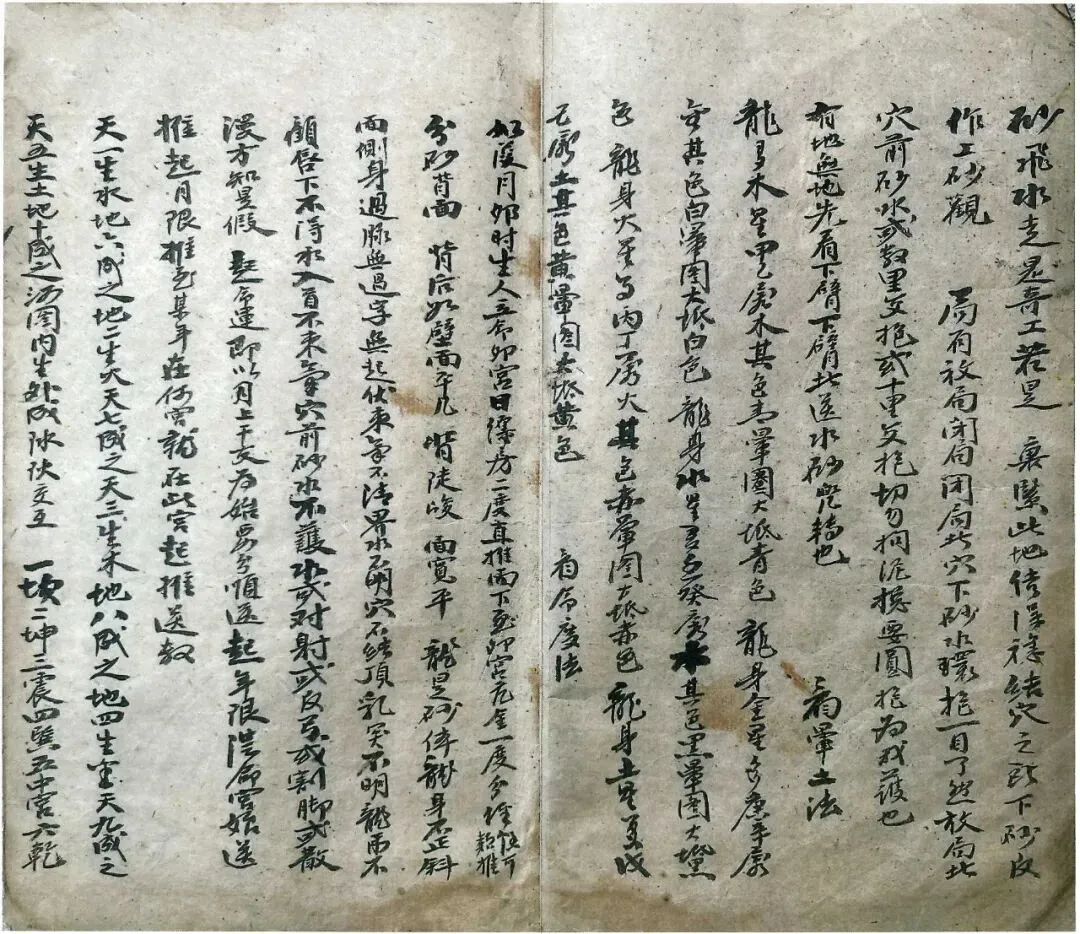 砂飛水走是奇工若是　裹緊此地俱浮穩結穴之所下砂反
作工砂觀　局有放局閉局閉局此穴下砂水環抱一目了然放局此
穴前砂水或数里交抱或十里交抱切勿拘泥總要圓抱為我護也
有地無地先看下臂下臂此送水砂兜轉也　看暈土法
龍身木星甲乙屬木其色青暈圈大抵青色　龍身金星庚辛屬
金其色白暈圈大抵白色　龍身水星壬癸屬水其色黑暈圈大抵黑
色　龍身火星丙丁屬火其色赤暈圈大抵赤色　龍身土星戊
己屬土其色黃暈圈大抵黃色　看命度法
如復月卯时生人立命卯宮日纏房二度直推而下至卯宮亢金一度分經
分砂背面　背后如壁面平几　背陡峻　面寬平　龍是砂體龍身歪斜
而側身過脉無過字無起伏來龍不清界水不明穴不結頂乳突不明龍而不
顧唇下不淂水入首不束氣穴前砂水不護水或对射或反弓或割脚或散
漫方知是假　起命運即以月上干支为始男分順逆起年限從命宮順逆
推起月限推至某年在何宮就在此宮起推逆数
天一生水地六成之地二生火天七成之天三生木地八成之地四生金天九成之
天五生土地十成之河图内生外成陰陽交互　一坎二坤三震四巽五中宮六乾